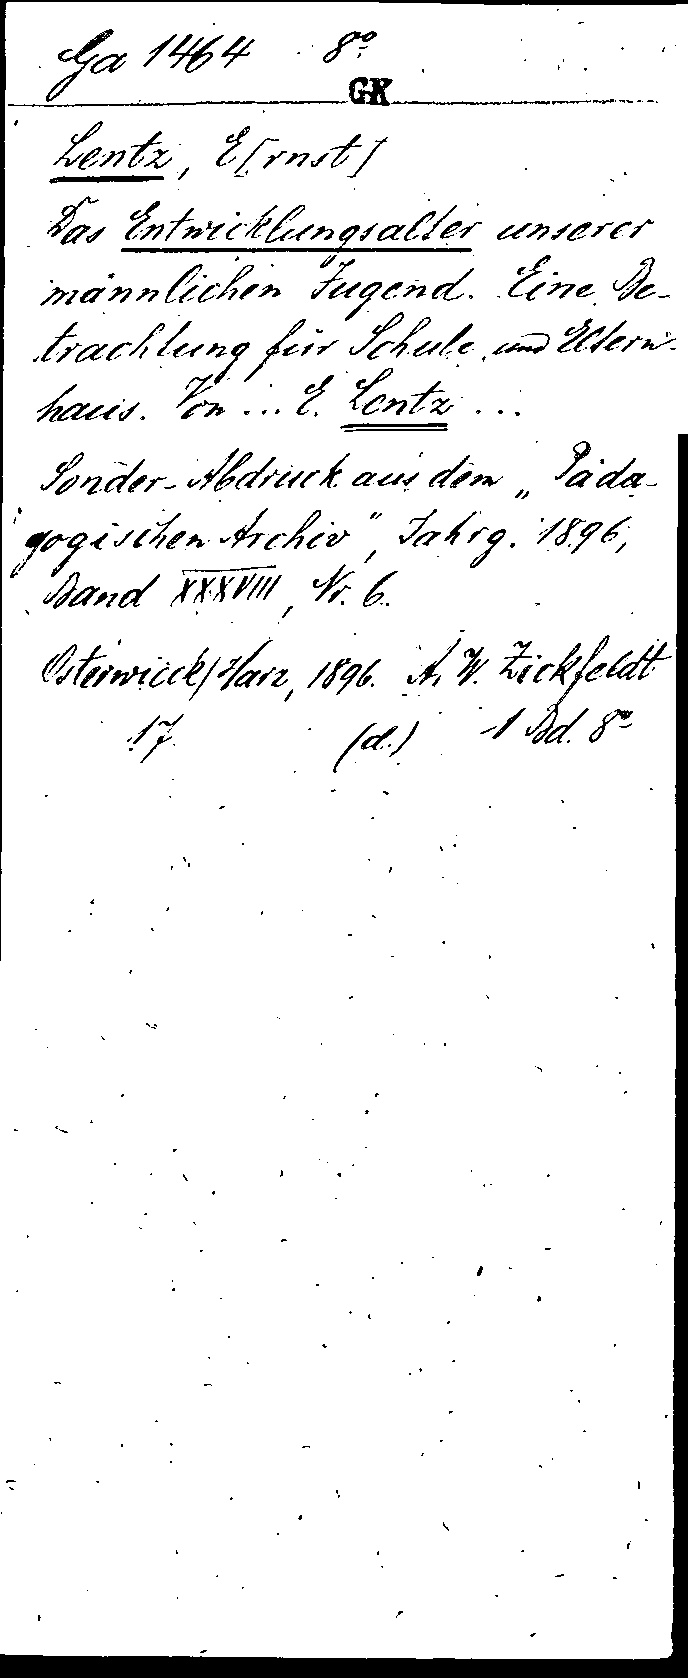 Ga 1464 8°
GK
Lentz, E[rnst]
Das Entwicklungsalter unserer
männlichen Jugend. Eine Be-
trachtung für Schule und Eltern-
haus. Von ... E. Lentz ...
Sonder-Abdruck aus dem „Päda-
gogischen Archiv", Jahrg. 1896,
Band XXXVIII, Nr. 6.
Osterwieck/Harz, 1896. A. W. Zickfeldt
17 (d.) 1 Bd. 8°